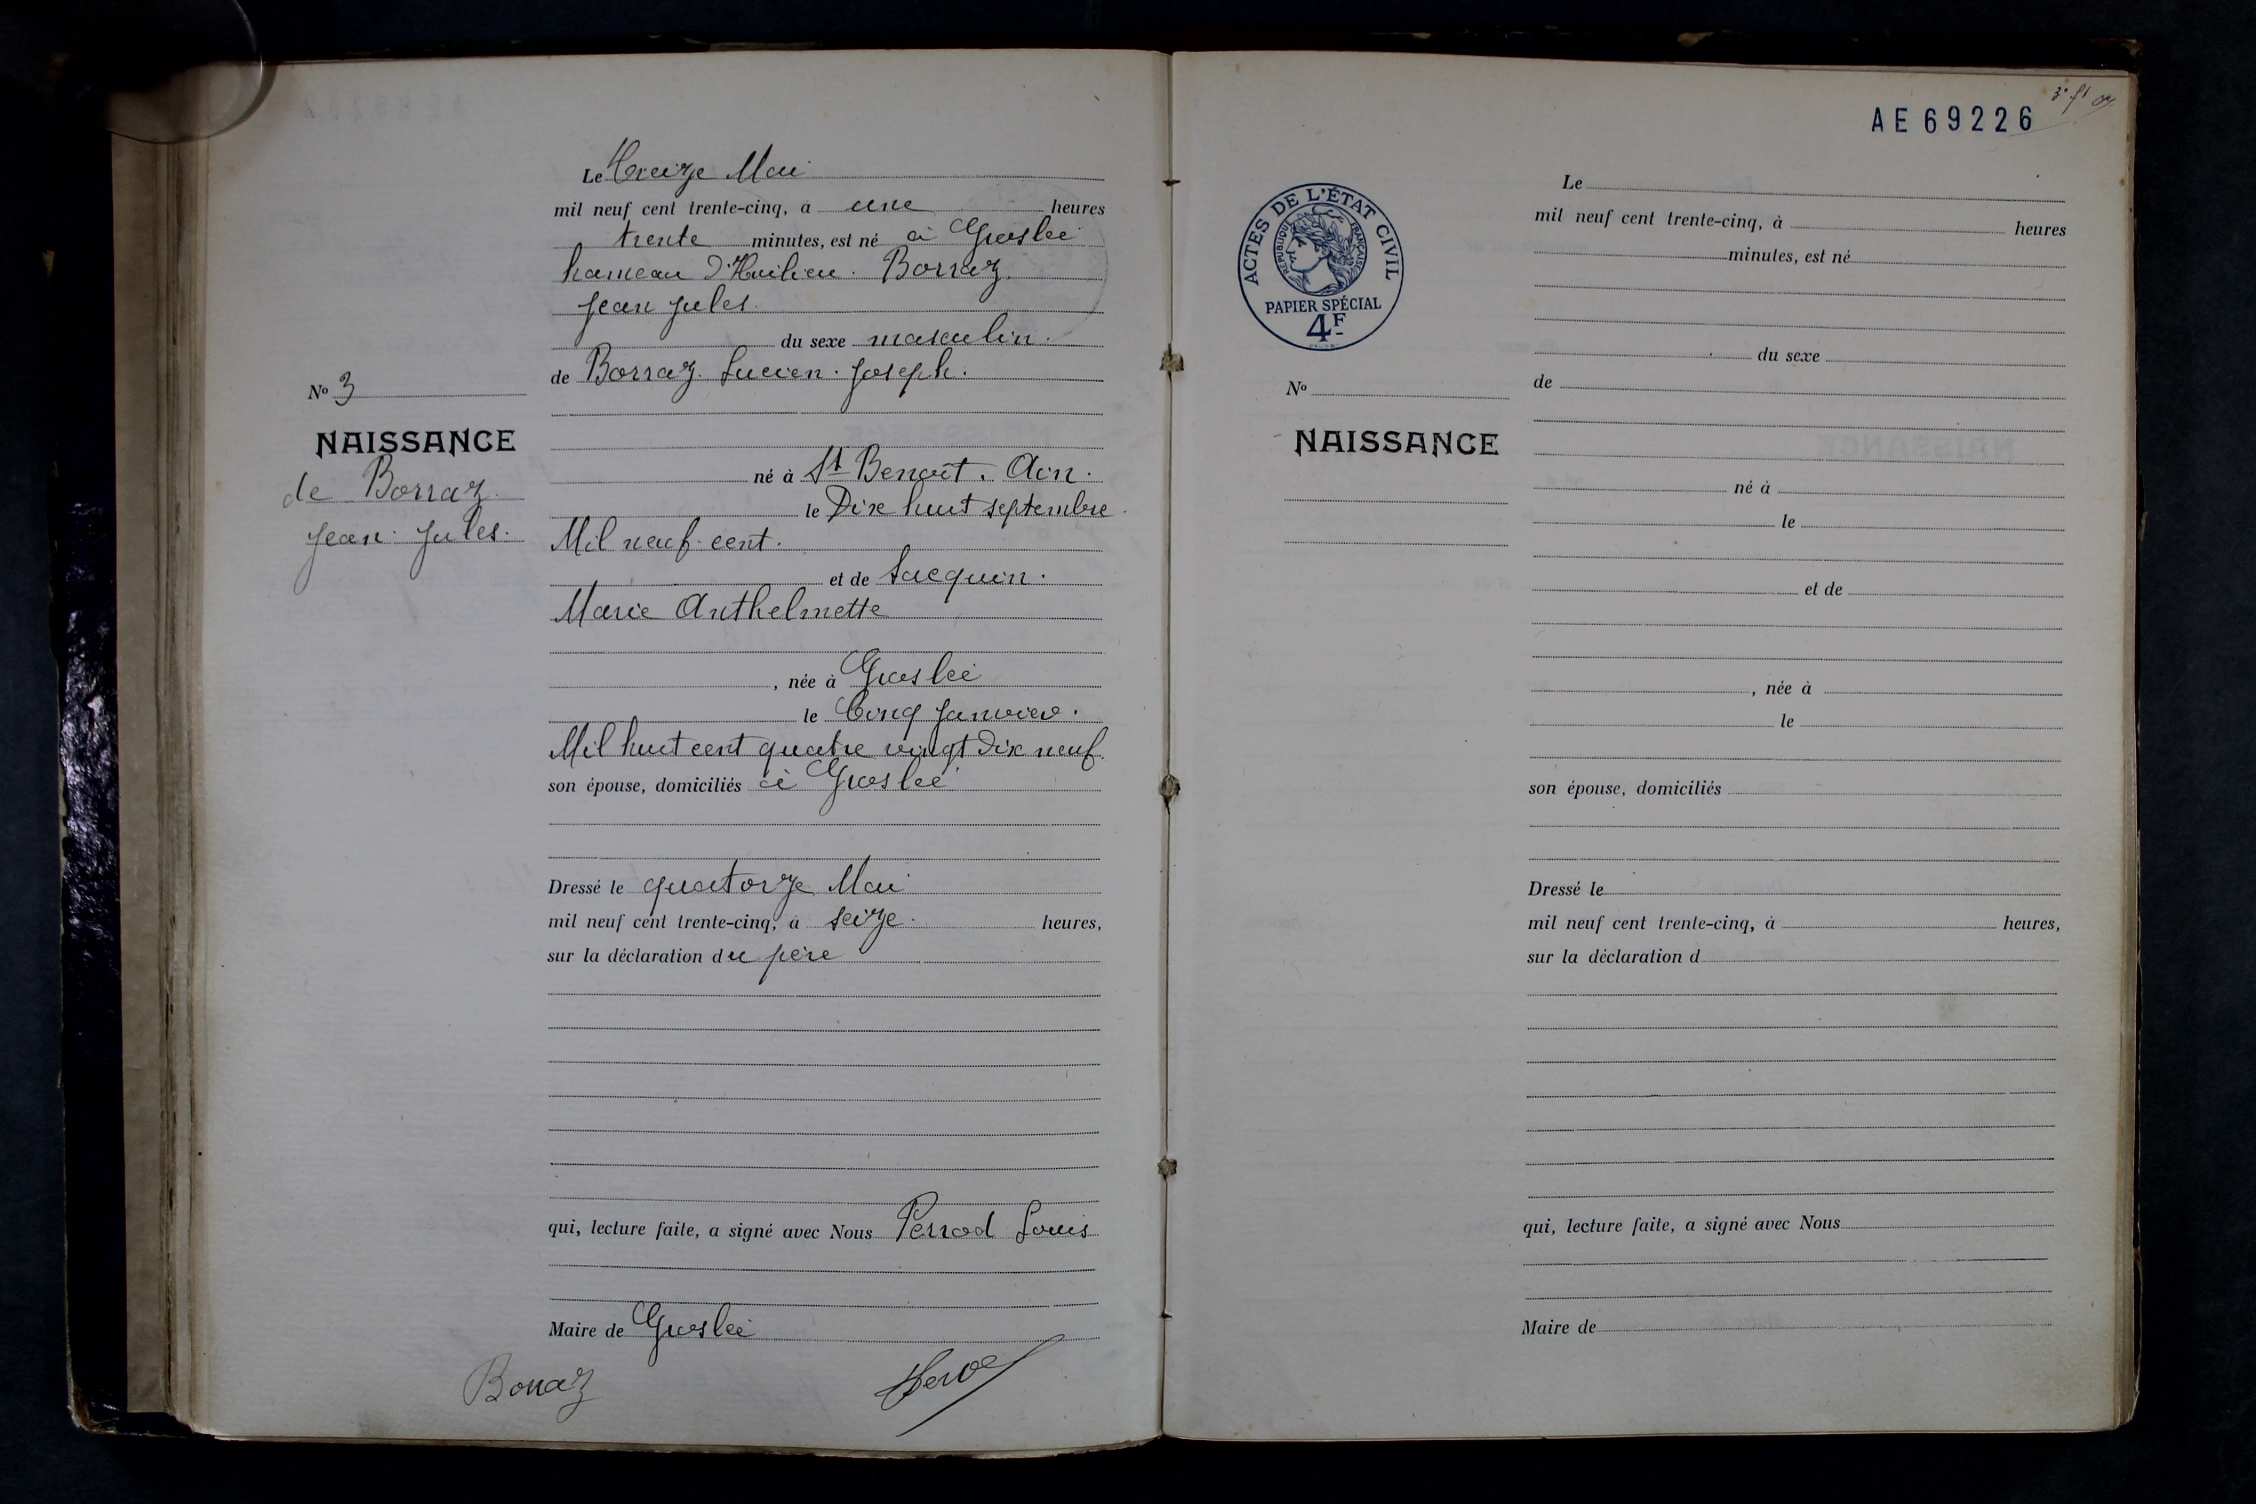 Le Treize Mai
mil neuf cent trente-cinq, à une heures
trente minutes, est né à Groslée
hameau d'Huilieu. Borraz
Jean Jules.
du sexe masculin.
de Borraz. Lucien. Joseph.
né à St Benoît. Ain.
le Dix huit septembre
Mil neuf cent.
et de Jacquin.
Marie Anthelmette
, née à Groslée
le Cinq Janvier.
Mil huit cent quatre vingt dix neuf.
son épouse, domiciliés à Groslée
Dressé le quatorze Mai
mil neuf cent trente-cinq, à seize. heures,
sur la déclaration du père
qui, lecture faite, a signé avec Nous Perrod Louis
Maire de Groslée
Borraz
No 3
NAISSANCE
de Borraz
Jean. Jules.
AE69226
ACTES DE L'ÉTAT CIVIL
RÉPUBLIQUE FRANÇAISE
PAPIER SPÉCIAL
4F
No
NAISSANCE
Le
mil neuf cent trente-cinq, à heures
minutes, est né
du sexe
de
né à
le
et de
, née à
le
son épouse, domiciliés
Dressé le
mil neuf cent trente-cinq, à heures,
sur la déclaration d
qui, lecture faite, a signé avec Nous
Maire de